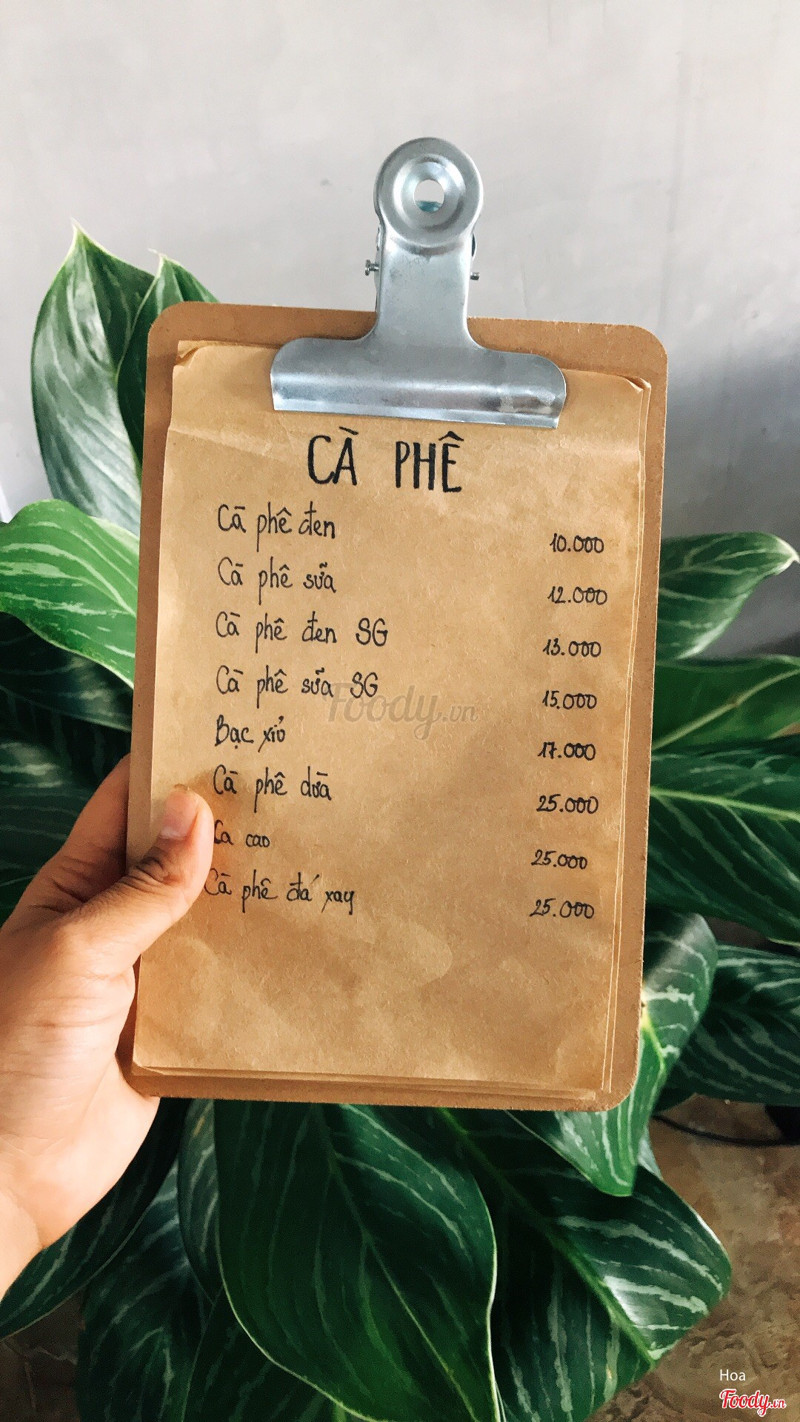 CÀ PHÊ
Cà phê đen 10.000
Cà phê sữa 12.000
Cà phê đen SG 13.000
Cà phê sữa SG 15.000
Foody.vn
Bạc xỉu 17.000
Cà phê dừa 25.000
Ca cao 25.000
Cà phê đá xay 25.000
Hoa
Foody.vn